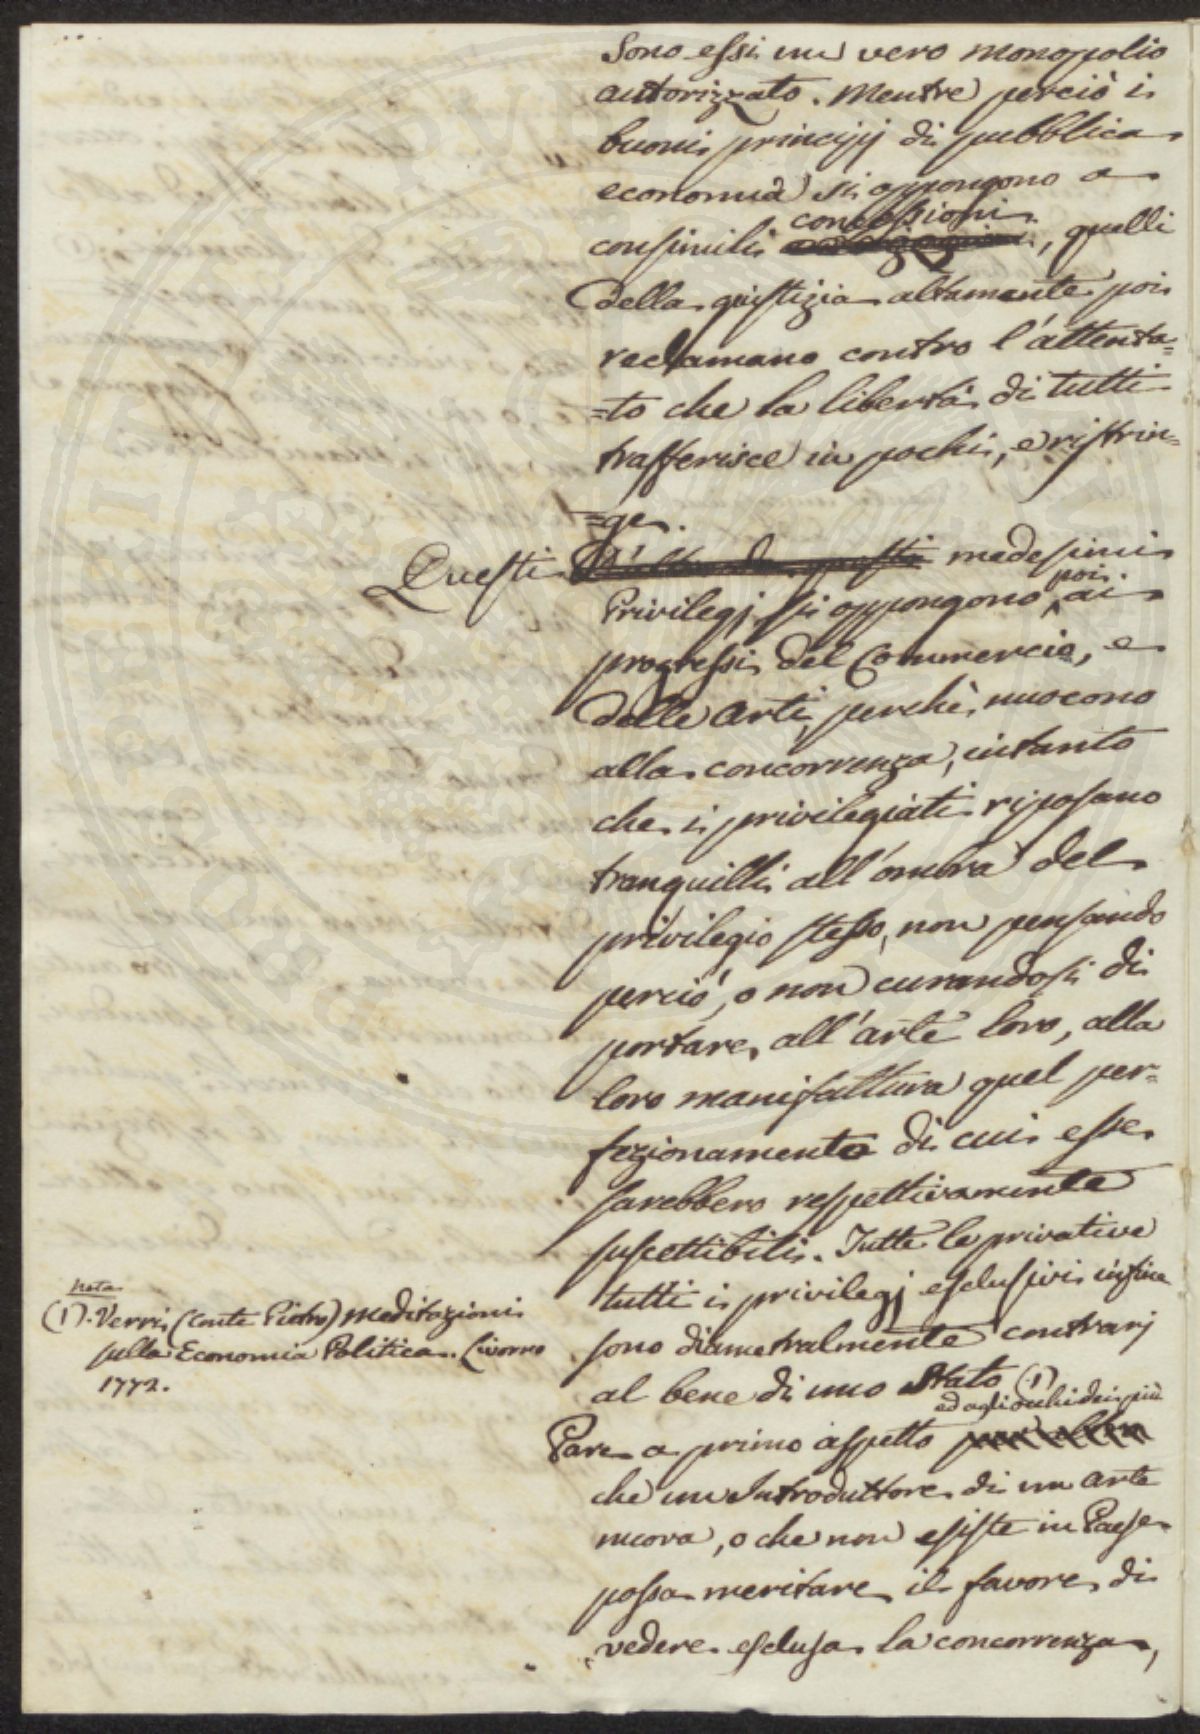 Sono essi un vero monopolio
autorizzato. Mentre perciò i
buoni principj di pubblica
economia si oppongono a
concessioni
consimili, quelli
della giustizia altamente poi
reclamano contro l'attenta=
=to che la libertà di tutti
trasferisce in pochi, e ristrin=
=ge.
Questi medesimi
poi
Privilegj si oppongono ai
progressi del Commercio, e
delle Arti, perchè nuocono
alla concorrenza, intanto
che i privilegiati riposano
tranquilli all'ombra del
privilegio stesso, non pensando
perciò, o non curandosi di
portare all'arte loro, alla
loro manifattura quel per=
fezionamento di cui esse
sarebbero respettivamente
suscettibili. Tutte le privative
tutti i privilegj esclusivi infine
sono diametralmente contrarj
al bene di uno Stato (1)
ed agli occhi dei più
Pare a primo aspetto
che un Introduttore di un arte
nuova, o che non esiste in Paese
possa meritare il favore di
vedere esclusa la concorrenza,
Nota
(1). Verri (Conte Pietro) Meditazioni
sulla Economia Politica. Livorno
1772.